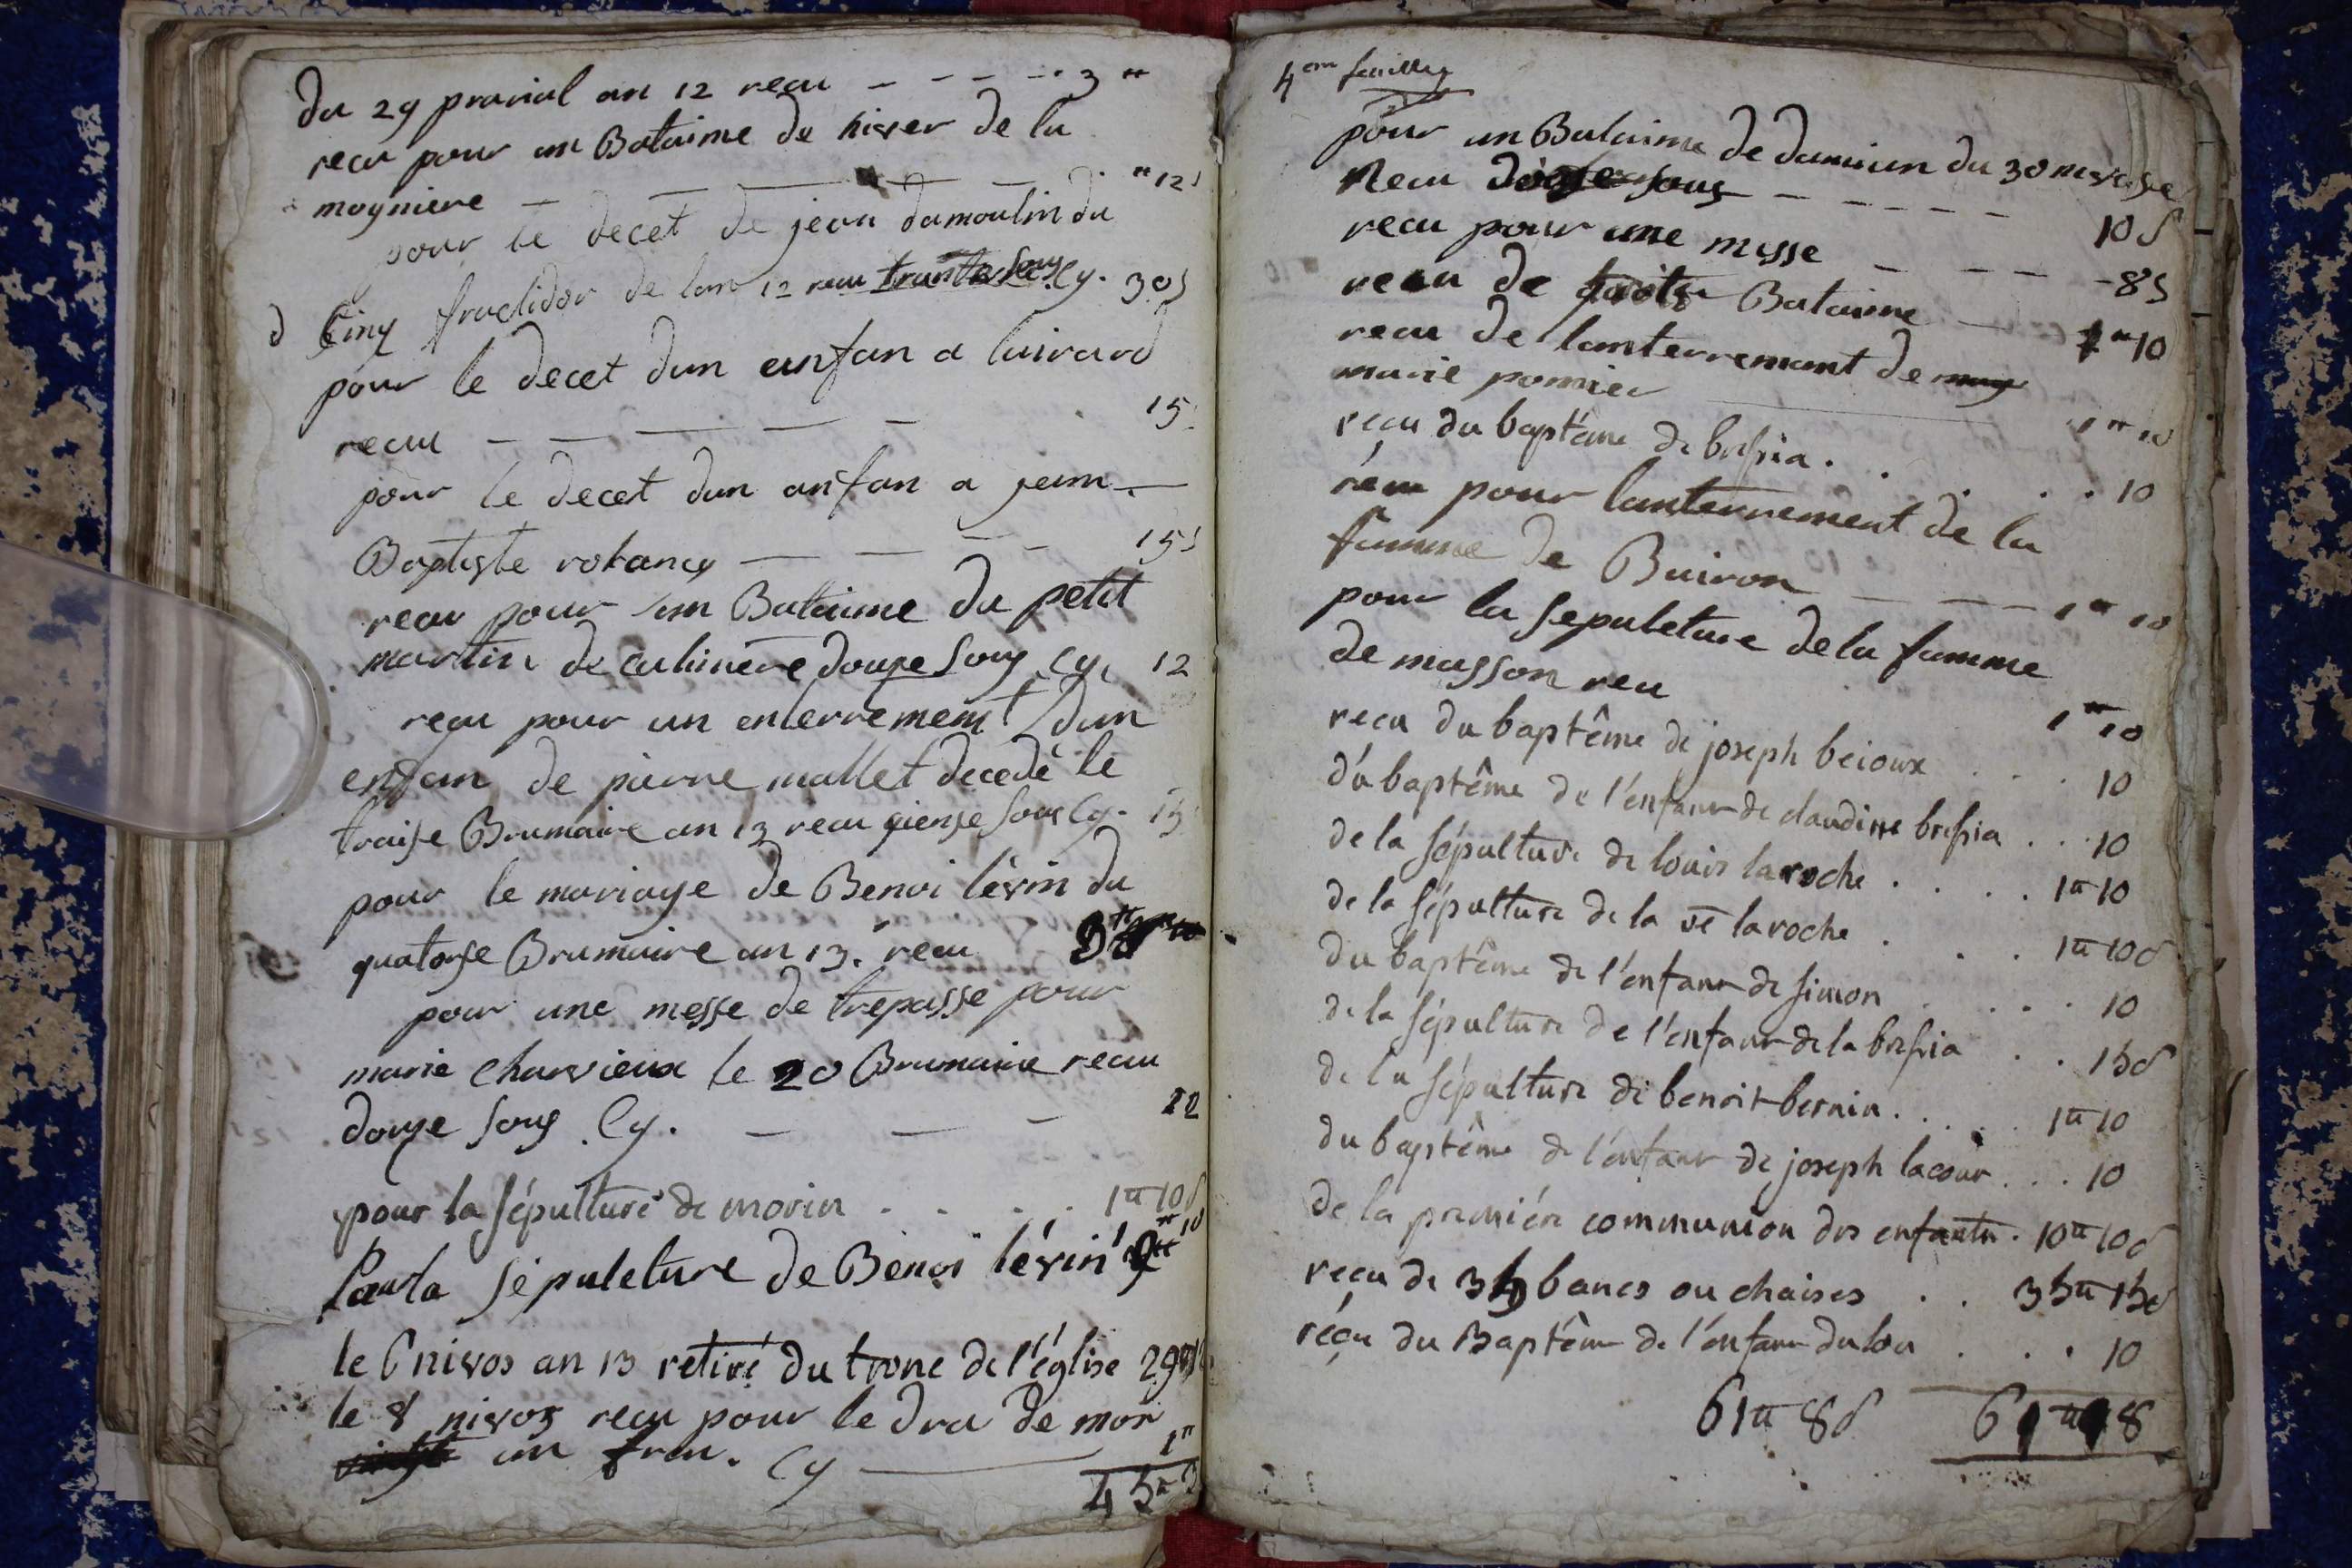 du 29 prarial an 12 recu - - - - 3 tt
recu pour un Bataime de hiver de la
mogniere - - - - " 12 s
pour le decet de jean dumoulin du
Cinq fructidor de lan 12 recu trante sous Cy. 30 s
pour le decet dun enfan a luirard
recu - - - - - 15
pour le decet dun anfan a jean
Baptiste - - - - 15 s
recu pour un Bataime du petit
martin de cuhinere douse sous Cy. 12
recu pour un enterrement dun
enfan de pierre mallet decedé le
traise Brumaire an 13 recu qienze sous Cy. 15
pour le mariage de Benoi lévin du
quatorse Brumaire an 13. recu 3 tt
pour une messe de trepassé pour
marie Charvieux le 20 Brumaire recu
douze sous Cy. - - - 12
pour la sépulture de morin . . . . 1 tt 10 s
Pour la sépuleture de Benoi lévin 1 tt 10
le 6 nivos an 13 retiré du tronc de l'église 29 tt
le 8 nivos recu pour le dra de mor
un fran. Cy 1 tt
45 tt
4em feuillet
pour un Bataime de damien du 30 nivose
Recu sous - - - - - 10 s
recu pour une messe - - - - 8 s
recu de Bataime 1 tt 10
recu de lanterremant de
marie pomier 1 tt 10
reçu du baptême de bressia . . . . 10
recu pour lanterrement de la
famme de Buiron - - - 1 tt 10
pour la sepuleture de la famme
de masson reu 1 tt 10
recu du baptême de joseph beioux . . . 10
du baptême de l'enfant de claudine bressia . . . 10
de la sépulture de louis laroche . . . . 1 tt 10
de la sépulture de la ve laroche . . . 1 tt 10 s
du baptême de l'enfant de simon . . . . 10
de la sépulture de l'enfant de la bressia . . . 15 s
de la sépulture de benoit bernin . . . . 1 tt 10
du baptême de l'enfant de joseph lacour . . . 10
de la premiére communion des enfants . 10 tt 10 s
recu de bancs ou chaises . . 35 tt 15 s
réçu du Baptême de l'enfant dulou . . . 10
61 tt 8 s 61 tt 8